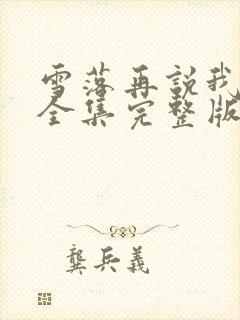 雪落再說我
全集完整版
龔兵義